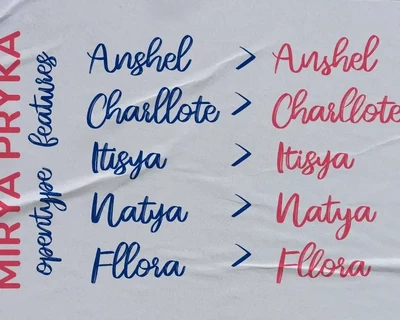 MIRYA PRYKA
opentype features
Anshel > Anshel
Charllote > Charllote
Itisya > Itisya
Natya > Natya
Fllora > Fllora